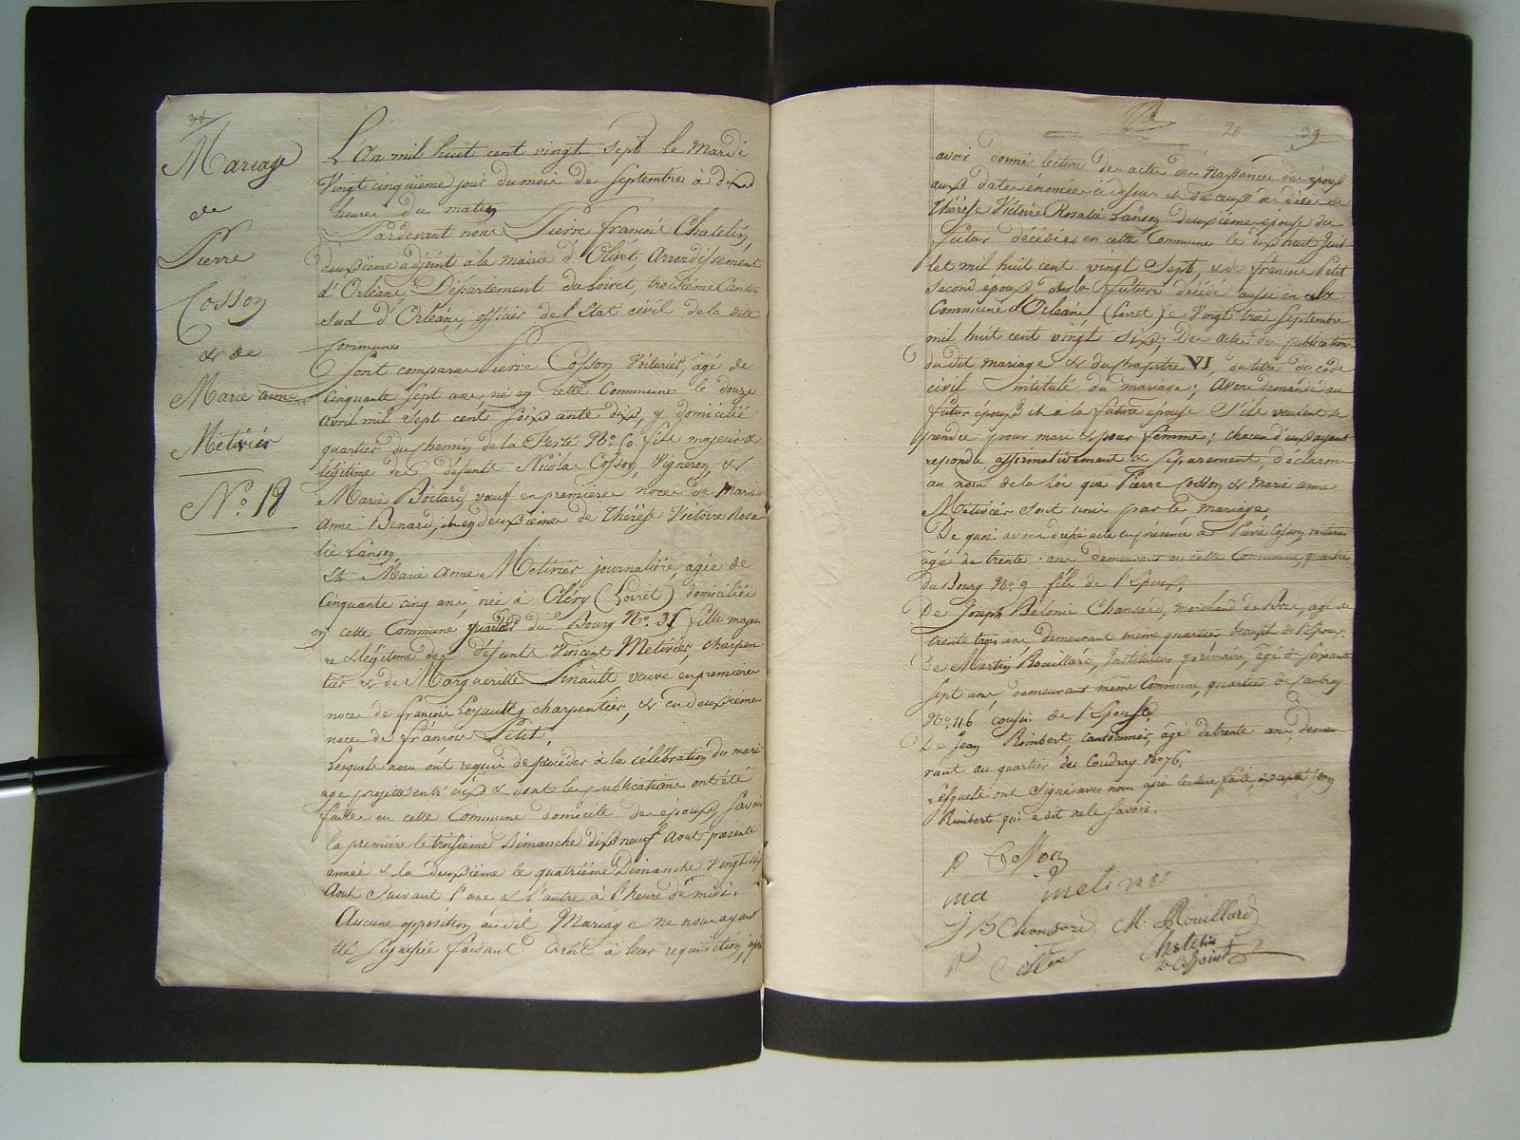 38
Mariage
de
Pierre
Cosson
& de
Marie anne
Metivier
N.o 18
L'an mil huit cent vingt sept le Mardi
Vingt cinquieme jour du mois de Septembre à dix
heures du matin
Pardevant nous Pierre francois Chatelin
deuxieme adjoint à la mairie d'Olivet, Arrondissement
d'Orléans, Département du Loiret, troisieme canton
sud d'Orléans, officier de l'Etat civil de la dite
Commune
Sont comparus Pierre Cosson Voiturier, agé de
Cinquante Sept ans, né en cette Commune le douze
avril mil sept cent soixante dix, y domicilié
quartier du chemin de la Ferté N.o 60 fils majeur &
légitime de défunts Nicolas Cosson, Vigneron, &
Marie Boitard, veuf en premiere noces de Marie
Anne Benard, & en deuxieme de Thérèse Victoire Rosa
lie Lanson,
Et Marie Anne Metivier journaliere, agée de
Cinquante cinq ans, née à Cléry (Loiret), domiciliée
en cette Commune quartier du Bourg N.o 31 fille majeu
re & légitime des défunts Vincent Metivier, charpen
tier & de Marguerite Pinault veuve en premiere
noce de françois Loyault, charpentier, & en deuxieme
noce de françois Petit.
Lesquels nous ont requis de procéder à la célébration du mari
age projetté entr'eux & dont les publications ont été
faites en cette Commune domicile des époux, savoir
la premiere le troisieme Dimanche dix neuf Aout présente
année & la deuxieme le quatrieme Dimanche Vingt six
Aout suivant l'une & l'autre à l'heure de midi.
Aucune opposition au dit Mariage ne nous ayant
été signifiée faisant droit à leur requisition, après
20 39
avoir donné lecture des actes de Naissance des époux
aux dates énoncées ci dessus & de ceux de décès de
Thérèse Victoire Rosalie Lanson deuxieme épouse du
futur décédée en cette Commune le dix huit Juil
let mil huit cent vingt sept, & de francois Petit
second époux de la future décédé aussi en
Commune d'Orléans (Loiret) le Vingt trois Septembre
mil huit cent vingt six; Des actes de publication
du dit mariage & du chapitre VI du titre du code
civil Intitulé du mariage; Avons demandé au
futur époux & à la future épouse s'ils veulent se
prendre pour mari & pour femme; chacun d'eux ayant
repondu affirmativement & séparement, déclarons
au nom de la Loi que Pierre Cosson & Marie anne
Metivier sont unis par le mariage
De quoi avons dressé acte en présence de Pierre Cosson voiturier
âgé de trente ans demeurant en cette Commune, quartier
du Bourg N.o 9 fils de l'Epoux,
De Joseph Bélonie Chansard, marchand de Bois, agé de
trente trois ans, demeurant même quartier beaufils de l'Epoux.
De Martin Rouillard, Instituteur primaire, âgé de soixante
sept ans demeurant même Commune, quartier de
N.o 46 cousin de l'Epouse,
De Jean Rimbert Cantonnier, âgé de trente ans, demeu
rant au quartier du Coudray N.o 76,
Lesquels ont signé avec nous après lecture faite, excepté Jean
Rimbert qui a dit ne le savoir.
P Cosson
ma metivier
J B Chansard M. Rouillard
P Cosson Chatelin
adjoint